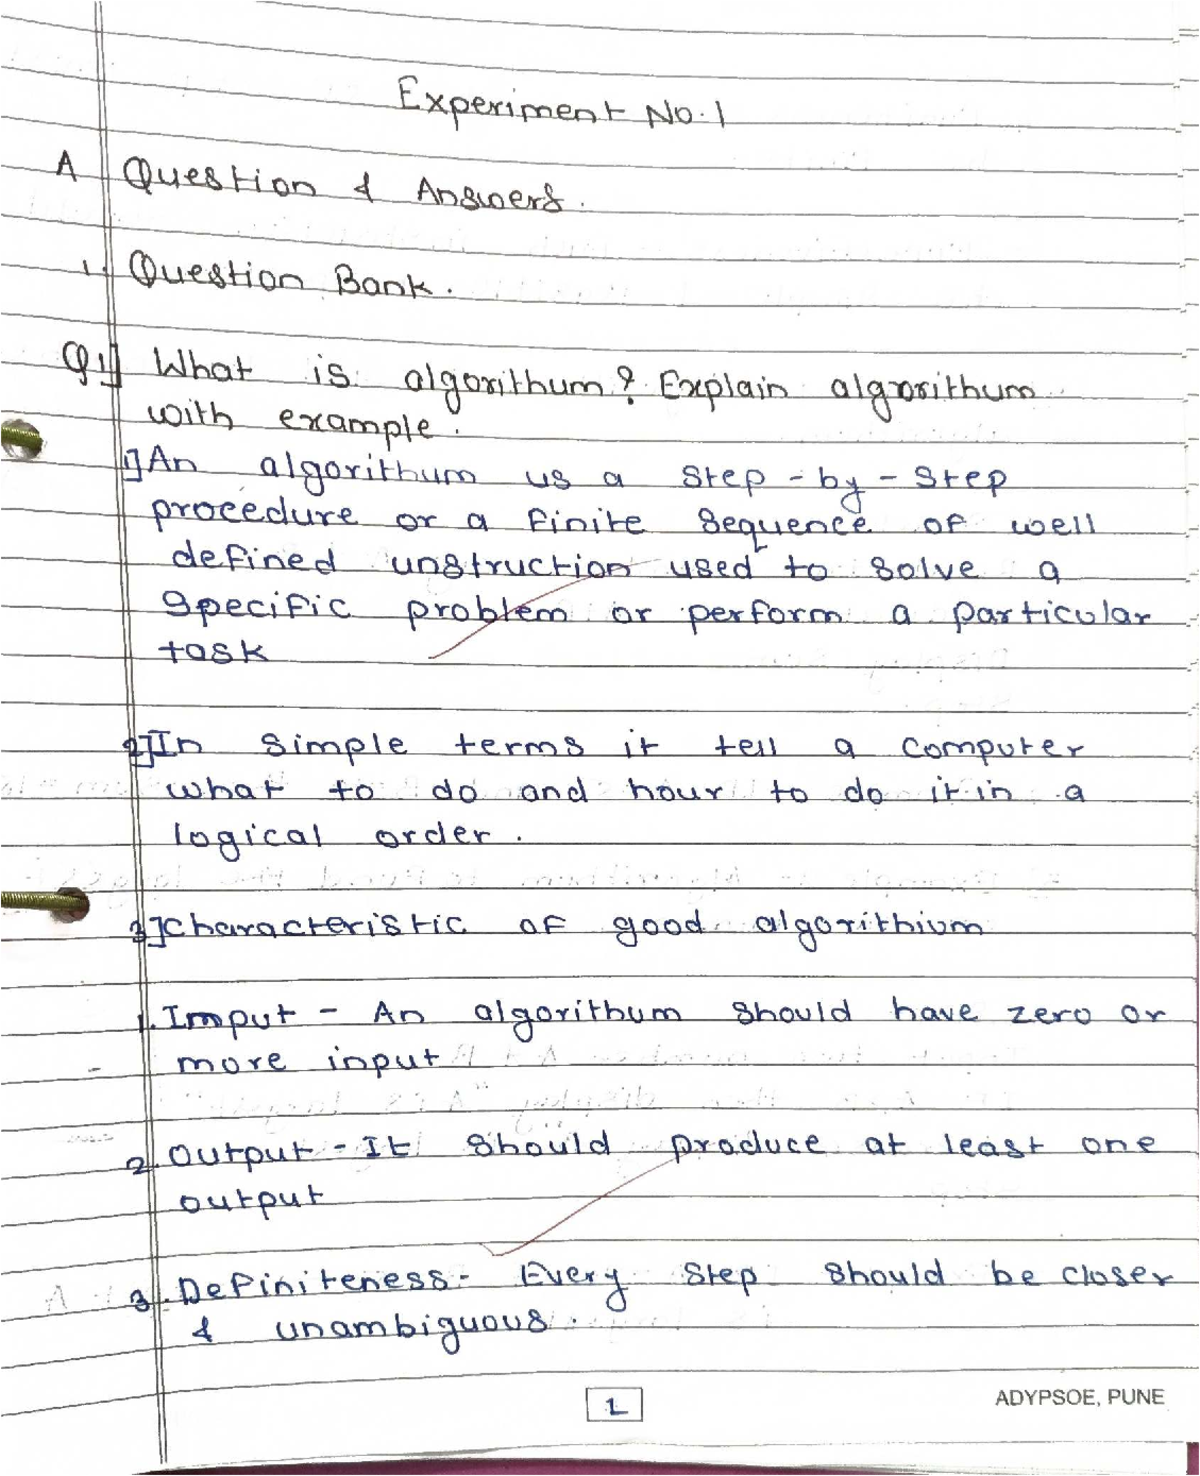 Experiment No. 1
A Question & Answers.
1. Question Bank.
Q1] What is algorithum? Explain algorithum
with example.
1] An algorithum us a Step-by-Step
procedure or a finite Sequence of well
defined unstruction used to solve a
Specific problem or perform a particular
task
2] In Simple terms it tell a computer
what to do and hour to do it in a
logical order.
3] characteristic of good algorithium
1. Imput - An algorithum should have zero or
more input
2. Output - It should produce at least one
output
3. Definiteness - Every Step should be closer
& unambiguous.
1
ADYPSOE, PUNE